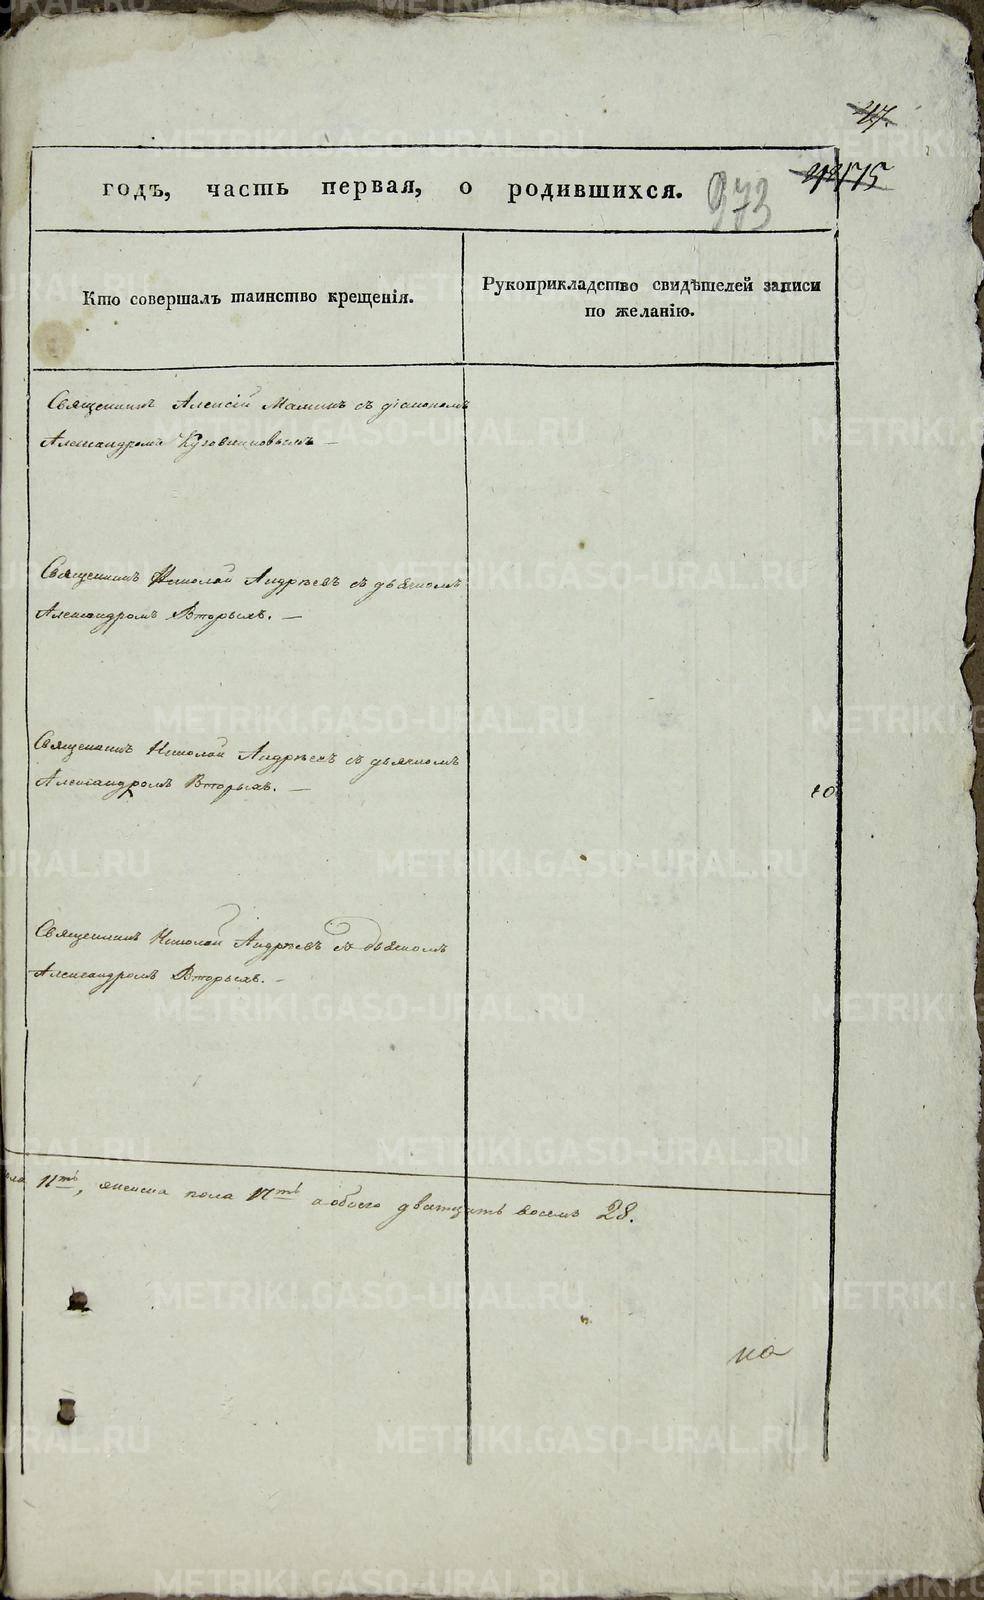 47.
годъ, часть первая, о родившихся.
973
Кто совершалъ таинство крещенія.
Рукоприкладство свидѣтелей записи по желанію.
Священникъ Алексій Малинъ съ діакономъ
Александромъ Кузовниковымъ —
Священникъ Николай Андрѣевъ съ дьякомъ
Александромъ Вторыхъ. —
Священникъ Николай Андрѣевъ съ дьякномъ
Александромъ Вторыхъ. —
Священникъ Николай Андрѣевъ съ дьякомъ
Александромъ Вторыхъ. —
11ть, женска пола 17ть а обоего дватцать восемь 28.
на
METRIKI.GASO-URAL.RU